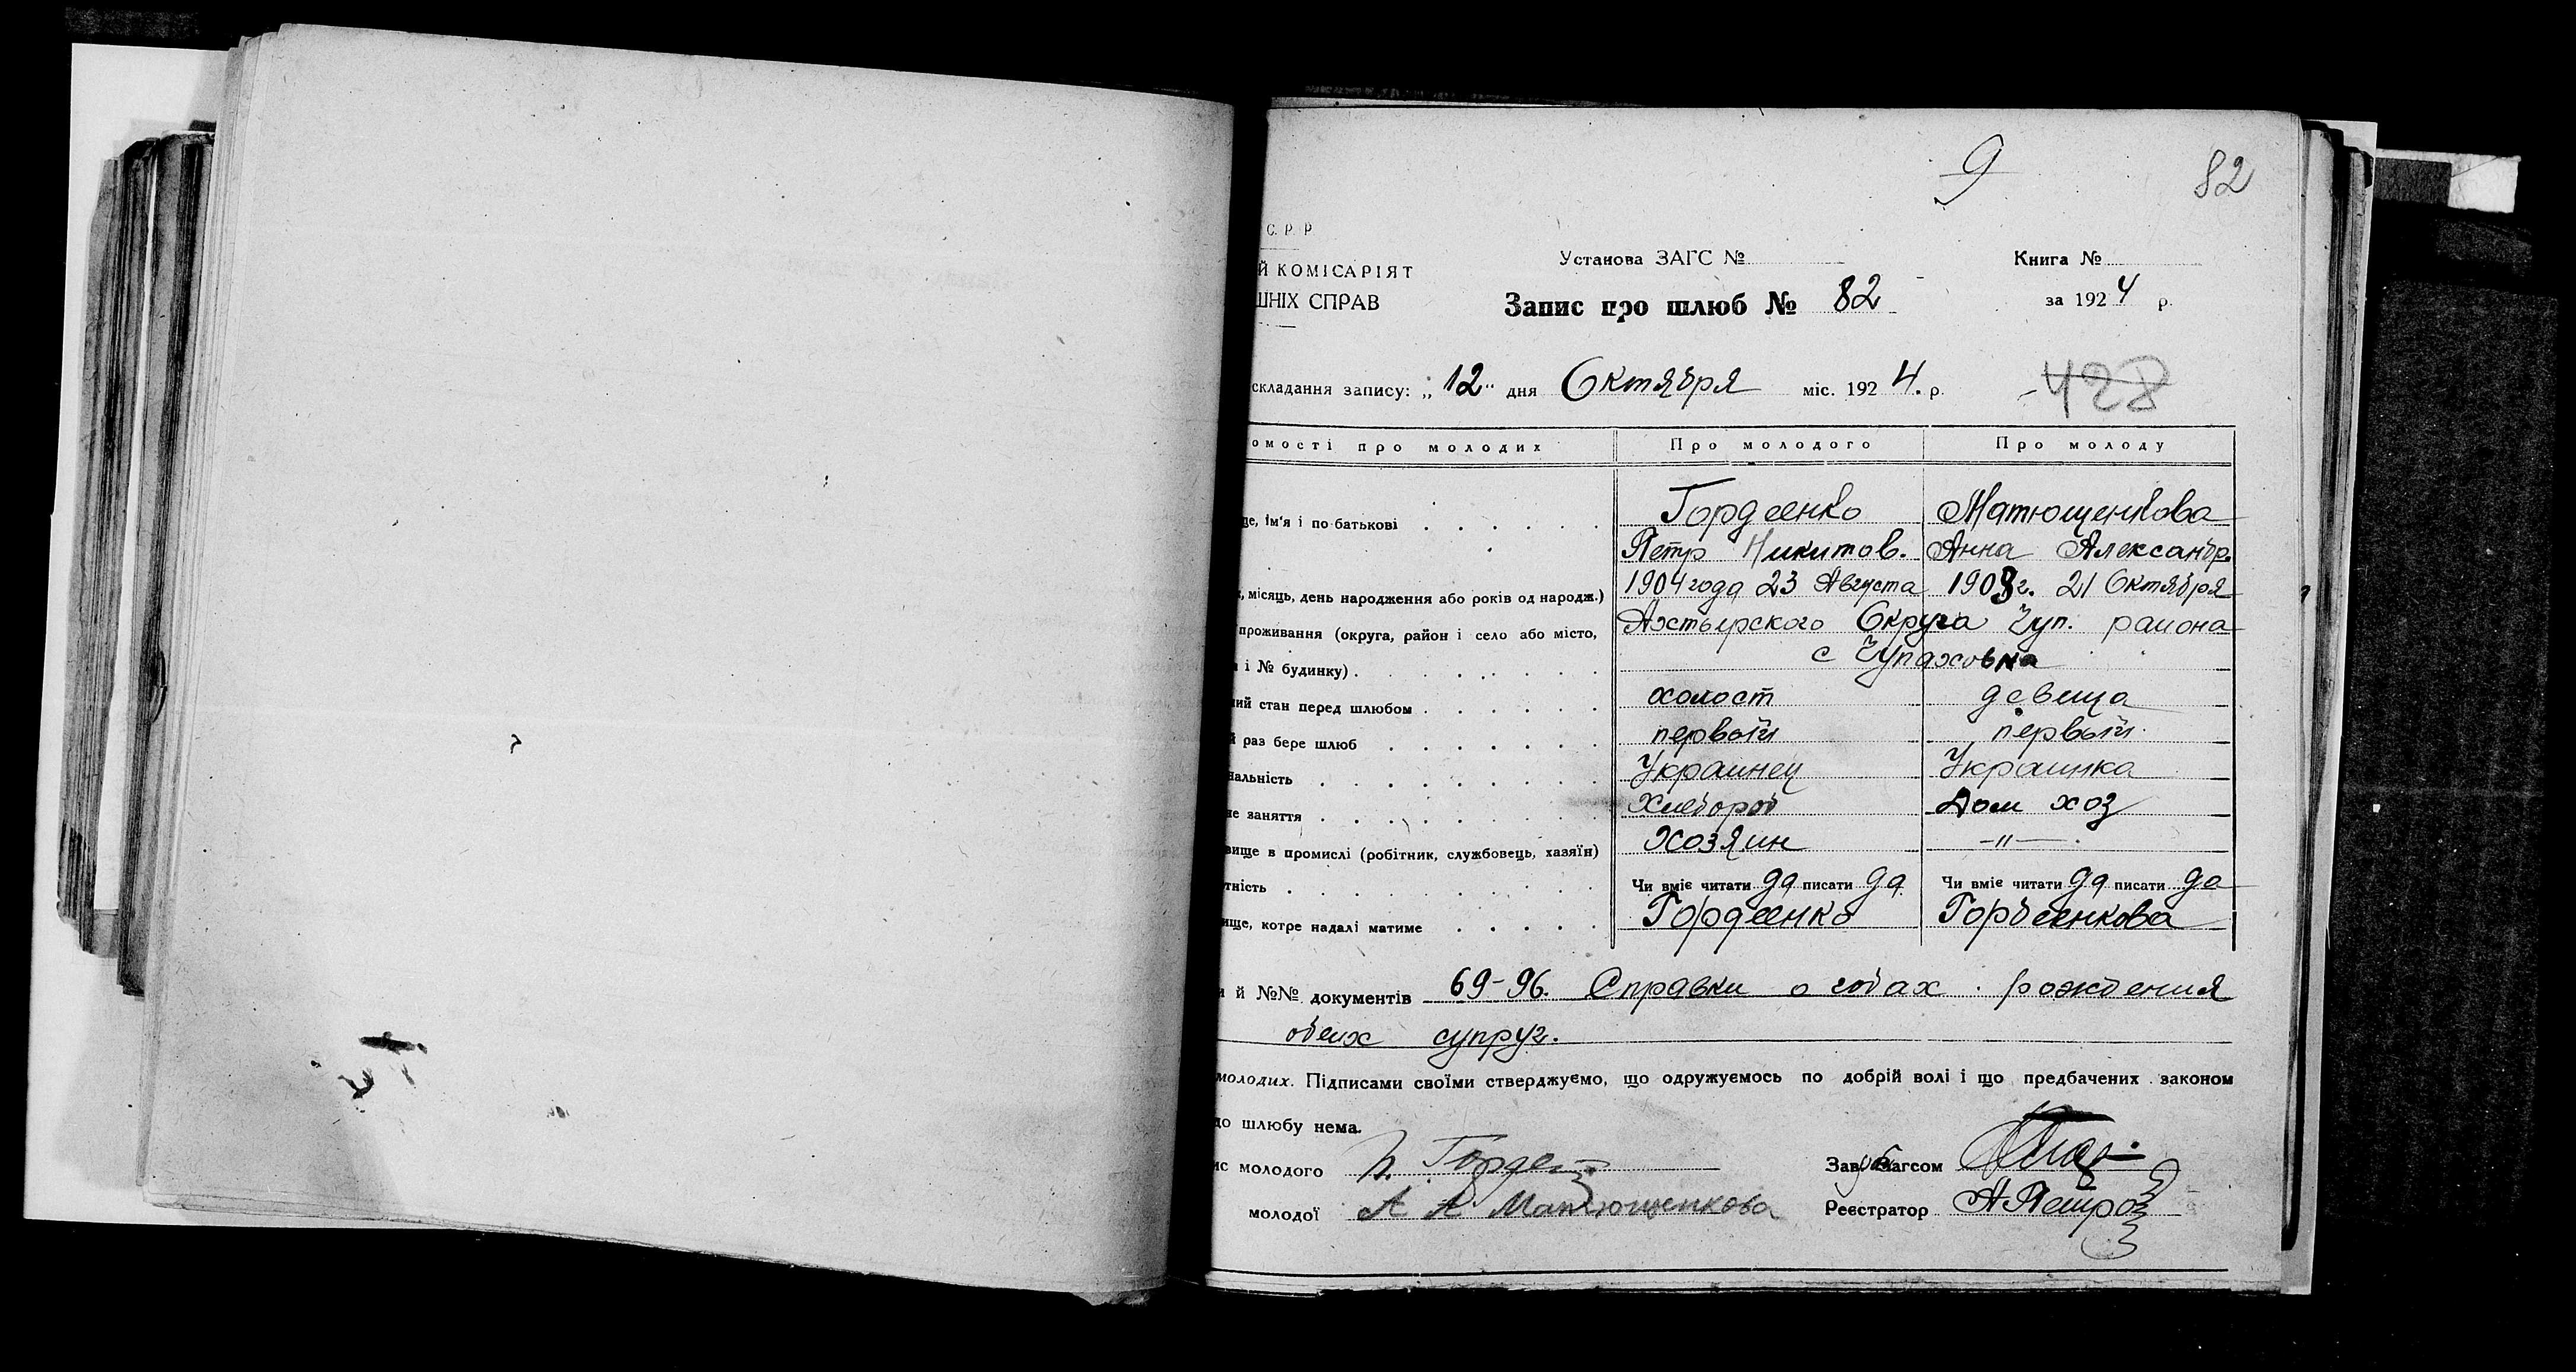 9
82
С. Р. Р
Й КОМІСАРІЯТ
ШНІХ СПРАВ
Установа ЗАГС №
Книга №
Запис про шлюб № 82
за 1924 р.
складання запису: „12" дня Октября міс. 1924. р.
428
омості про молодих Про молодого Про молоду
ще, ім'я і по батькові Гордеенко Матющенкова
Петр Никитов. Анна Александр.
, місяць, день народження або років од народж.) 1904 года 23 Августа 1908 г. 21 Октября
проживання (округа, район і село або місто, Ахтырского Округа Чуп. района
і № будинку) с Чупаховка
ий стан перед шлюбом холост девица
й раз бере шлюб первый первый.
нальність Украинец Украинка
не заняття Хлебороб Дом хоз
вище в промислі (робітник, службовець, хазяїн) Хозяин -"-
тність Чи вміє читати да писати да Чи вміє читати да писати да
ище, котре надалі матиме Гордеенко Гордеенкова
и й №№ документів 69-96. Справки о годах рождения
обеих супруг.
молодих. Підписами своїми стверджуємо, що одружуємось по добрій волі і що предбачених законом
до шлюбу нема.
ис молодого П. Гордеенко
Зав. Загсом
молодої А А Матющенкова
Реєстратор А Петро